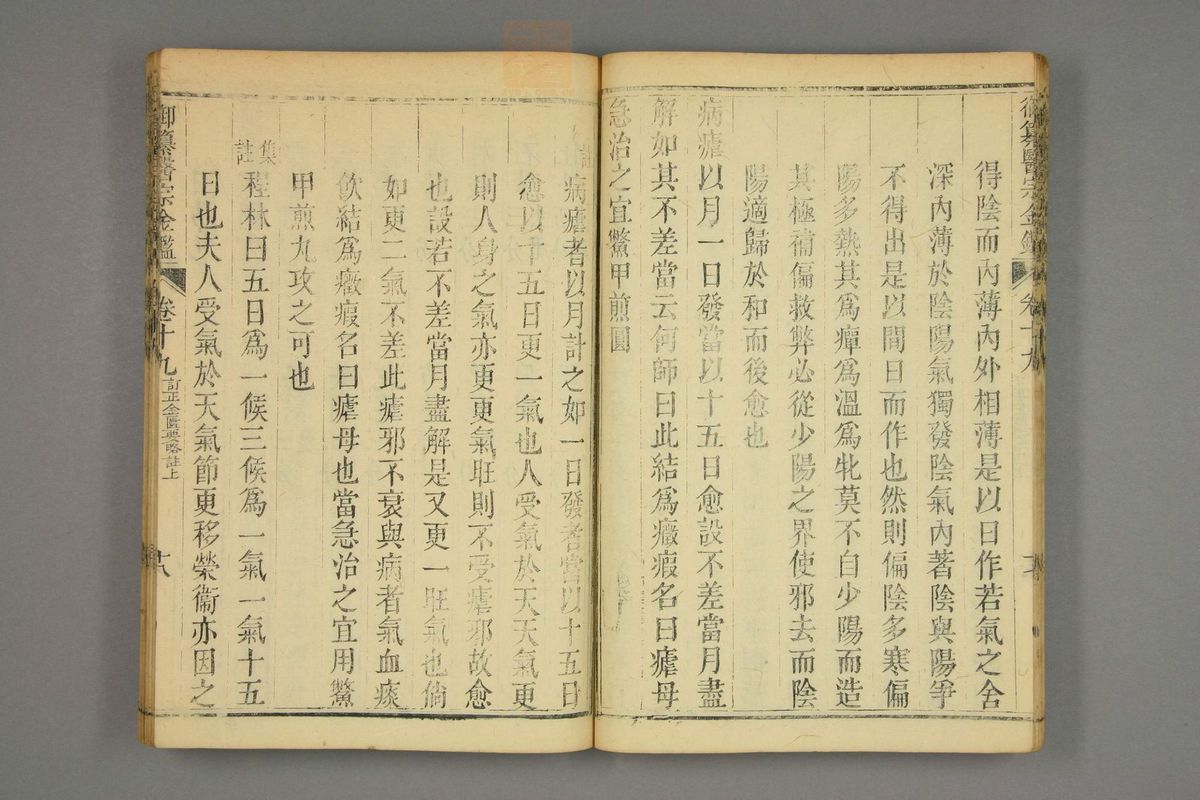 得陰而內薄內外相薄是以日作若氣之舍
深內薄於陰陽氣獨發陰氣內著陰與陽爭
不得出是以間日而作也然則偏陰多寒偏
陽多熱其爲癉爲溫爲牝莫不自少陽而造
其極補偏救弊必從少陽之界使邪去而陰
陽適歸於和而後愈也
病瘧以月一日發當以十五日愈設不差當月盡
解如其不差當云何師曰此結爲癥瘕名曰瘧母
急治之宜鱉甲煎圓
病瘧者以月計之如一日發者當以十五日
愈以十五日更一氣也人受氣於天天氣更
則人身之氣亦更更氣旺則不受瘧邪故愈
也設若不差當月盡解是又更一旺氣也倘
如更二氣不差此瘧邪不衰與病者氣血痰
飲結爲癥瘕名曰瘧母也當急治之宜用鱉
甲煎丸攻之可也
集註
程林曰五日爲一候三候爲一氣一氣十五
日也夫人受氣於天氣節更移榮衞亦因之
御纂醫宗金鑑
卷十九
訂正金匱要略註上
十八